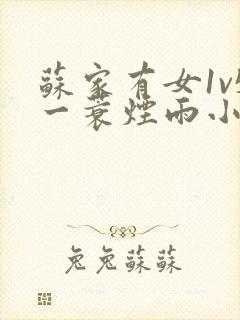 蘇家有女1v
一蓑煙雨小
兔兔蘇蘇